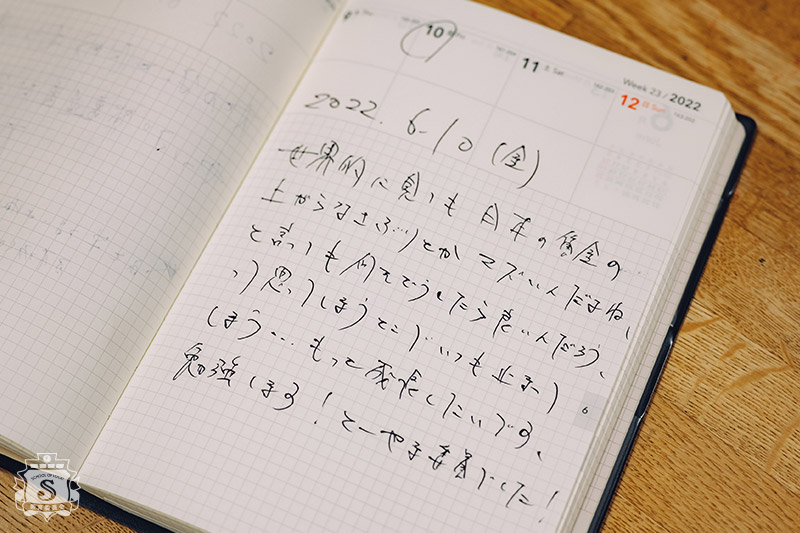 10
11 土 Sat
Week 23 / 2022
12 日 Sun
2022. 6.10 (金)
世界的に見ても日本の賃金の
上がらなさぶりとかマズいんだよね、
と言っても何をどうしたら良いんだろう、
って思ってしまうところでいつも止まって
しまう…もっと成長したいです、
勉強します! とーやま委員でした!
6
SCHOOL OF LOCK!
S